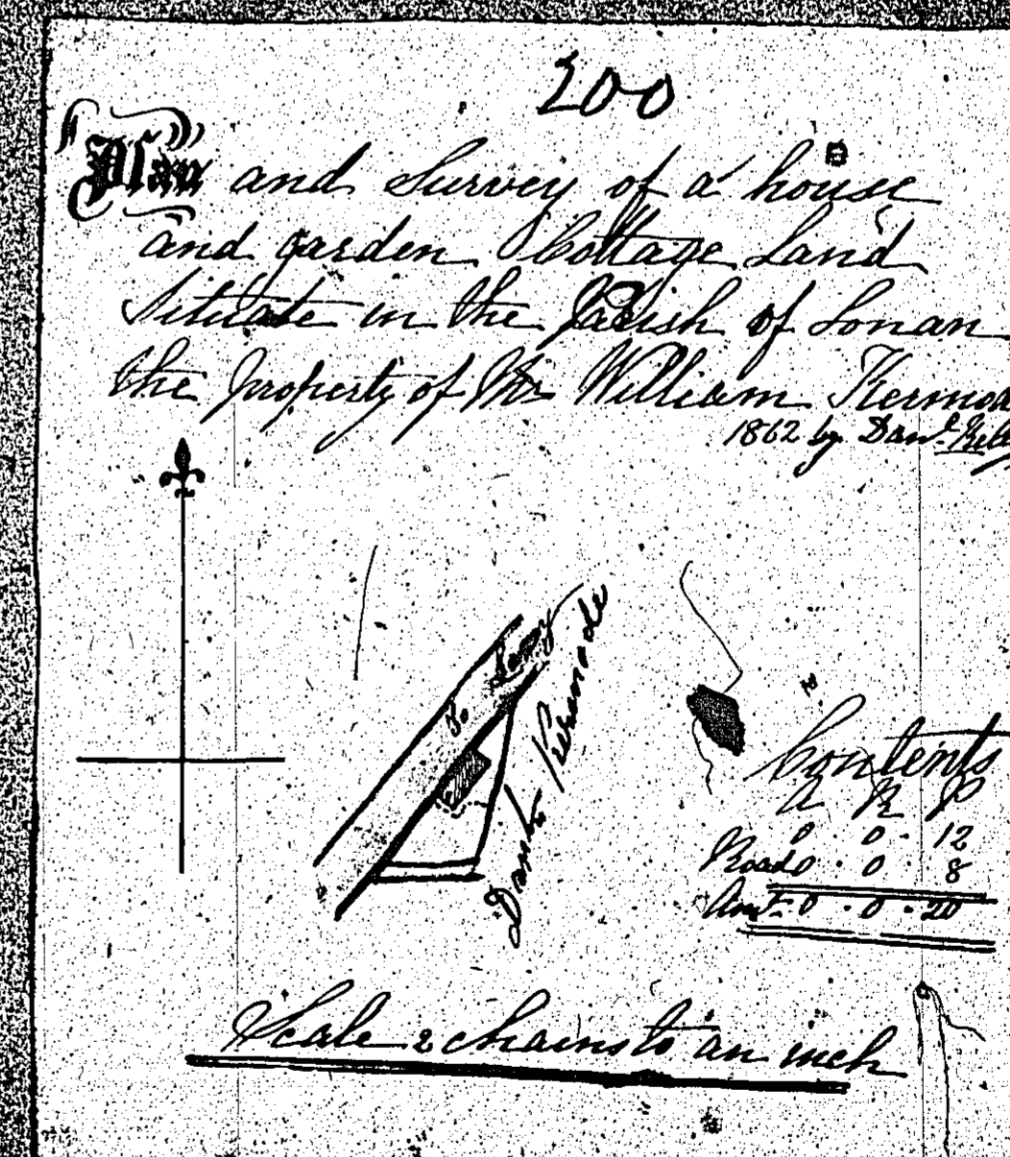 200
Plan and Survey of a house
and garden Cottage Land
Situate in the Parish of Lonan
the property of Mr William
1862 by Danl
To Laxey
Kermode
Contents
A R P
0 . 0 . 12
Road 0 . 0 . 8
Amt. 0 . 0 . 20
Scale 2 chains to an inch